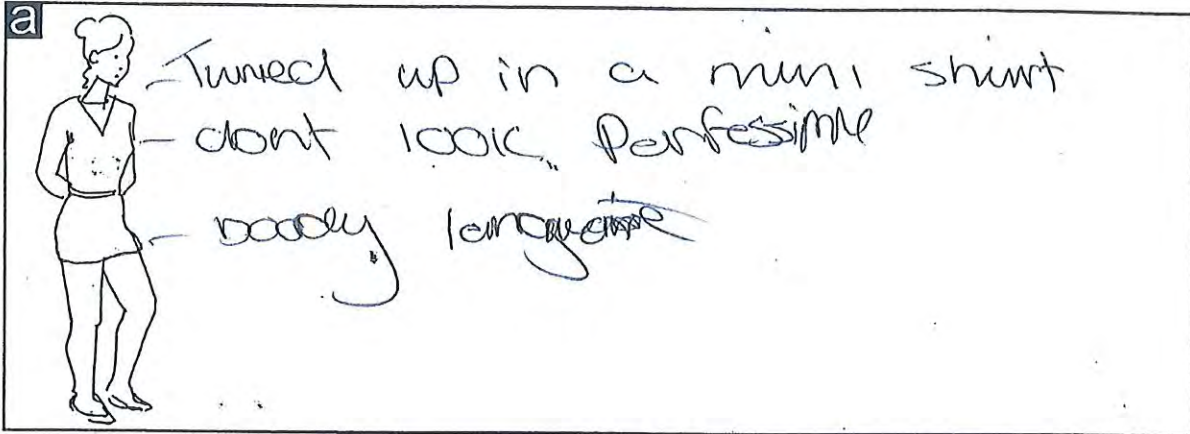 a
- Turned up in a mini shirt
- dont look Perfessinle
- boody language